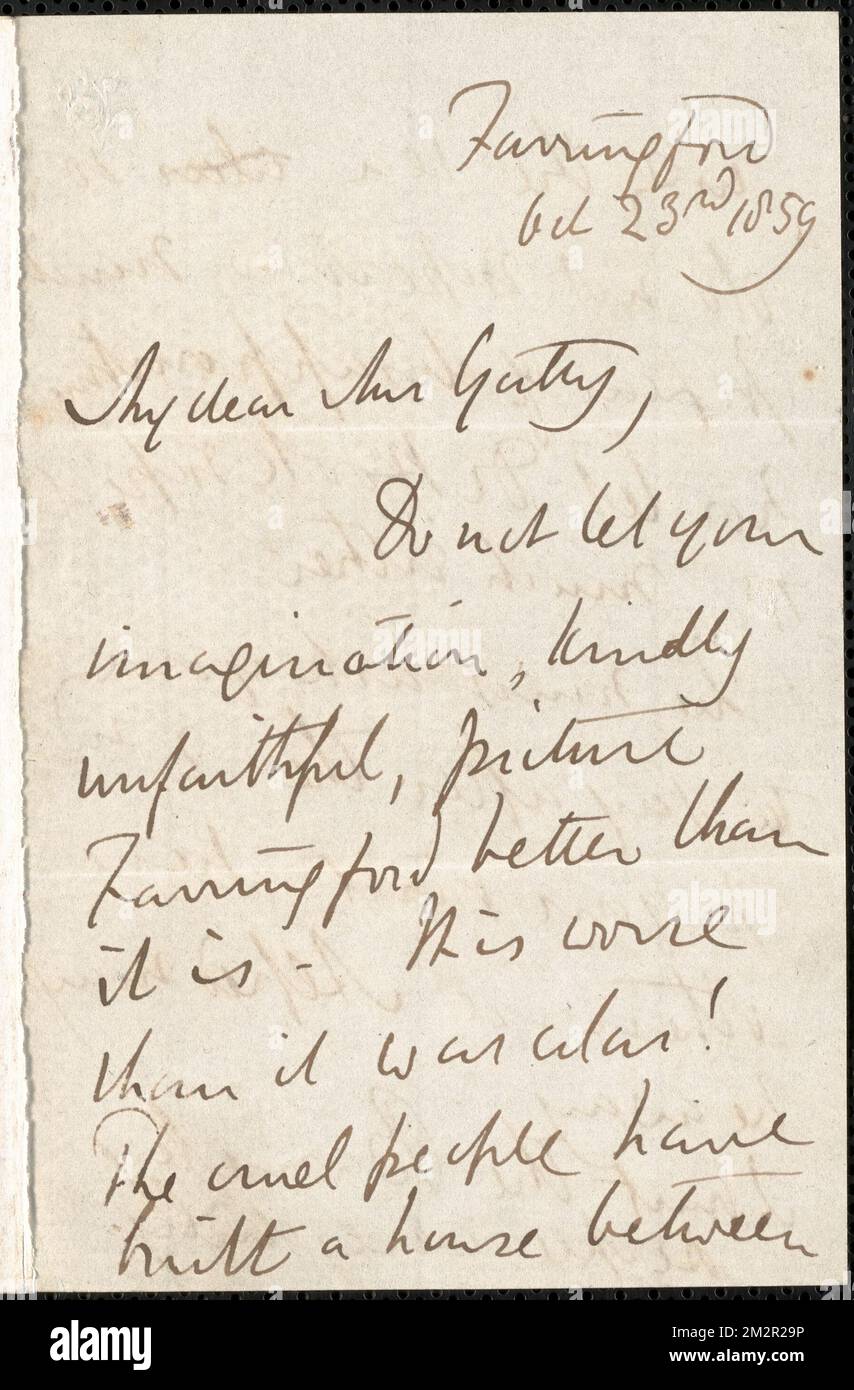 Farringford
Oct 23rd 1859
My dear Mrs Gatty,
Do not let your
imagination, kindly
unfaithful, picture
Farringford better than
it is – It is worse
than it was alas!
The cruel people have
built a house between
alamy
Image ID: 2M2R29P
www.alamy.com